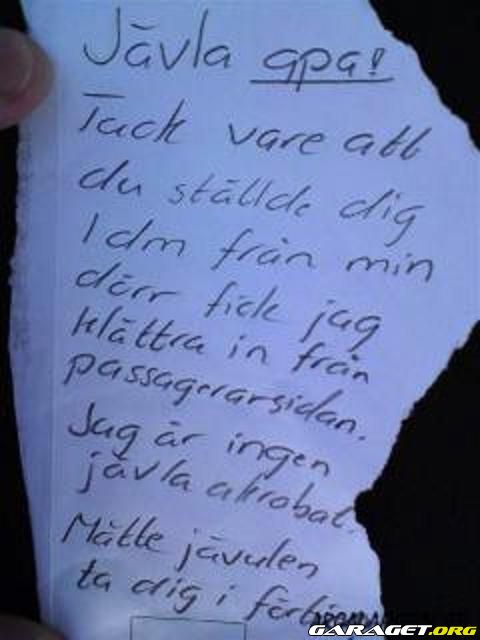 Jävla apa!
Tack vare att
du ställde dig
1dm från min
dörr fick jag
klättra in från
passagerarsidan.
Jag är ingen
jävla akrobat.
Måtte jävulen
ta dig i
GARAGET.ORG